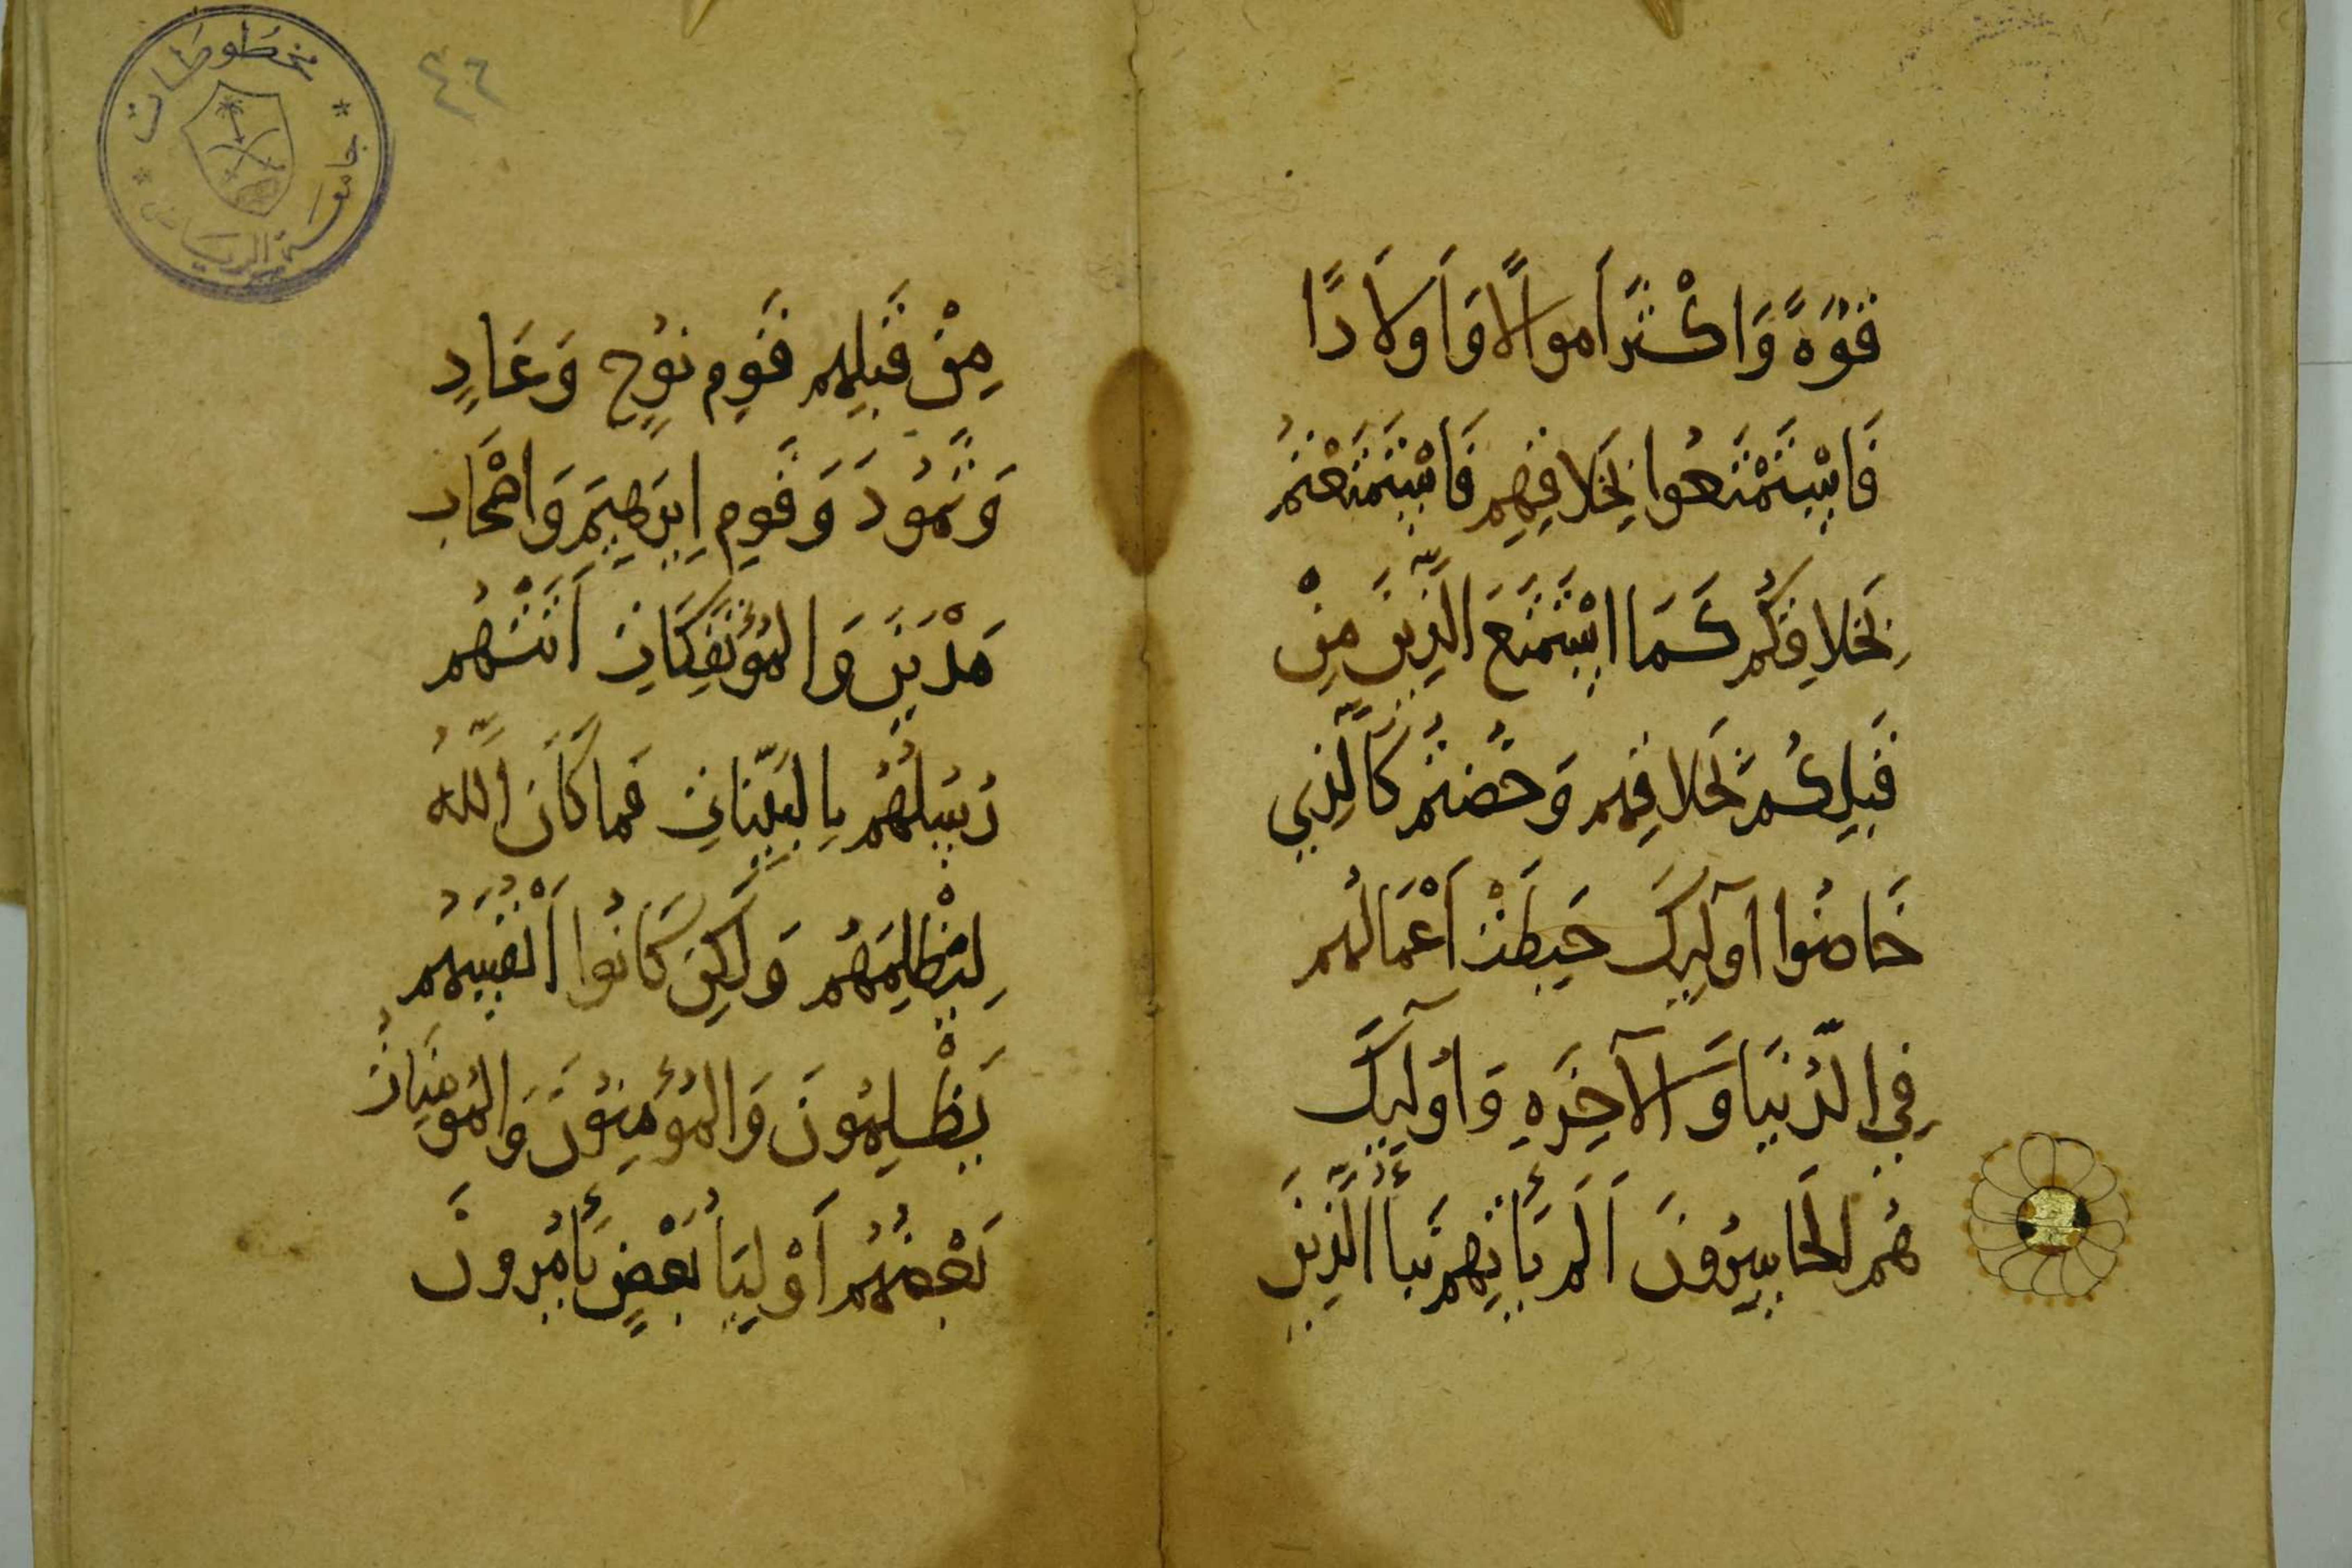 قُوَّةً وَاَكْثَرَ اَموَالًا وَاَولَادًا
فَاسْتَمْتَعُوا بِخَلَاقِهِم فَاسْتَمْتَعْتُم
بِخَلَاقِكُم كَمَا اسْتَمْتَعَ الَّذِينَ مِنْ
قَبلِكُم بِخَلَاقِهِم وَخُضتُم كَالَّذِي
خَاضُوا اُولَٓئِكَ حَبِطَتْ اَعْمَالُهُم
فِي الدُّنيَا وَالآخِرَةِ وَاُولَٓئِكَ
هُمُ الخَاسِرُونَ اَلَم يَأتِهِم نَبَأُ الَّذِينَ
مِنْ قَبلِهِم قَومِ نُوحٍ وَعَادٍ
وَثَمُودَ وَقَومِ اِبرَهِيمَ وَاَصْحَابِ
مَدْيَنَ وَالمُؤتَفِكَاتِ اَتَتْهُم
رُسُلُهُم بِالبَيِّنَاتِ فَمَا كَانَ اللَّهُ
لِيَظْلِمَهُم وَلَكِن كَانُوا اَنْفُسَهُم
يَظْلِمُونَ وَالمُؤمِنُونَ وَالمُومِنَاتُ
بَعْضُهُم اَوْلِيَاُ بَعْضٍ يَأمُرُونَ
٤٦
مخطوطات
جامعة الرياض